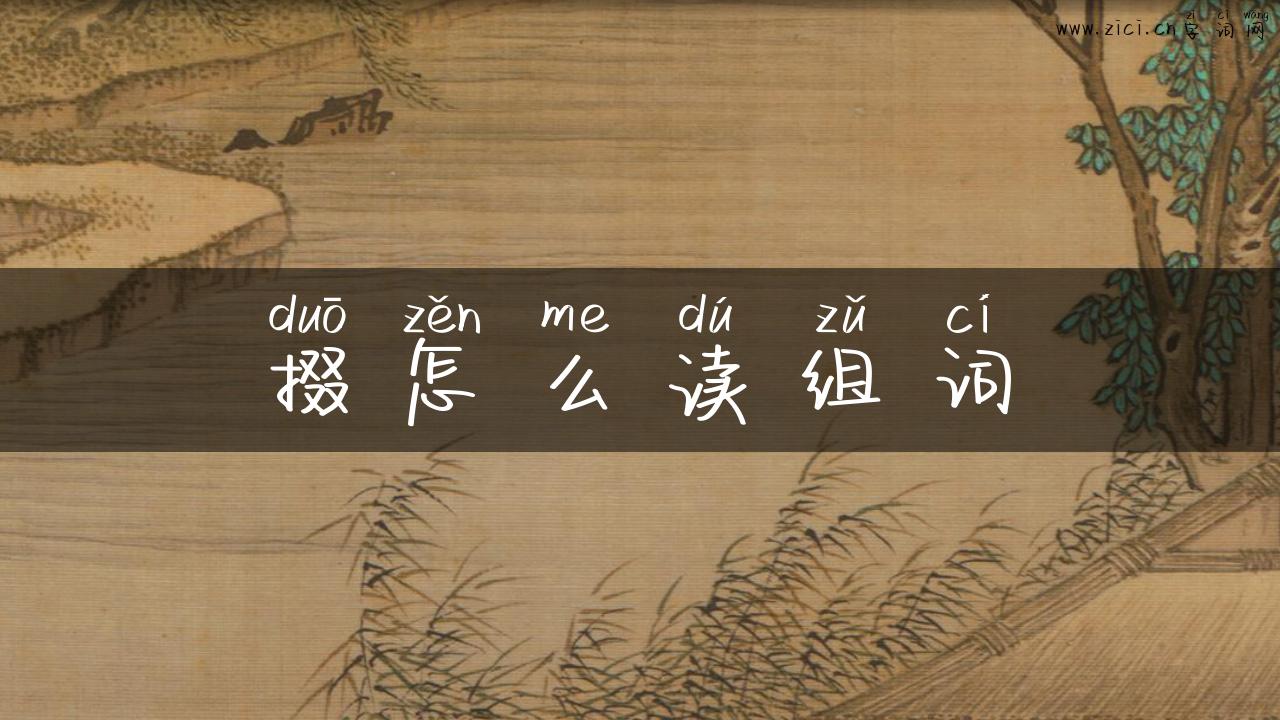 zì cí wǎng
www.zici.cn字词网
duō zěn me dú zǔ cí
掇怎么读组词